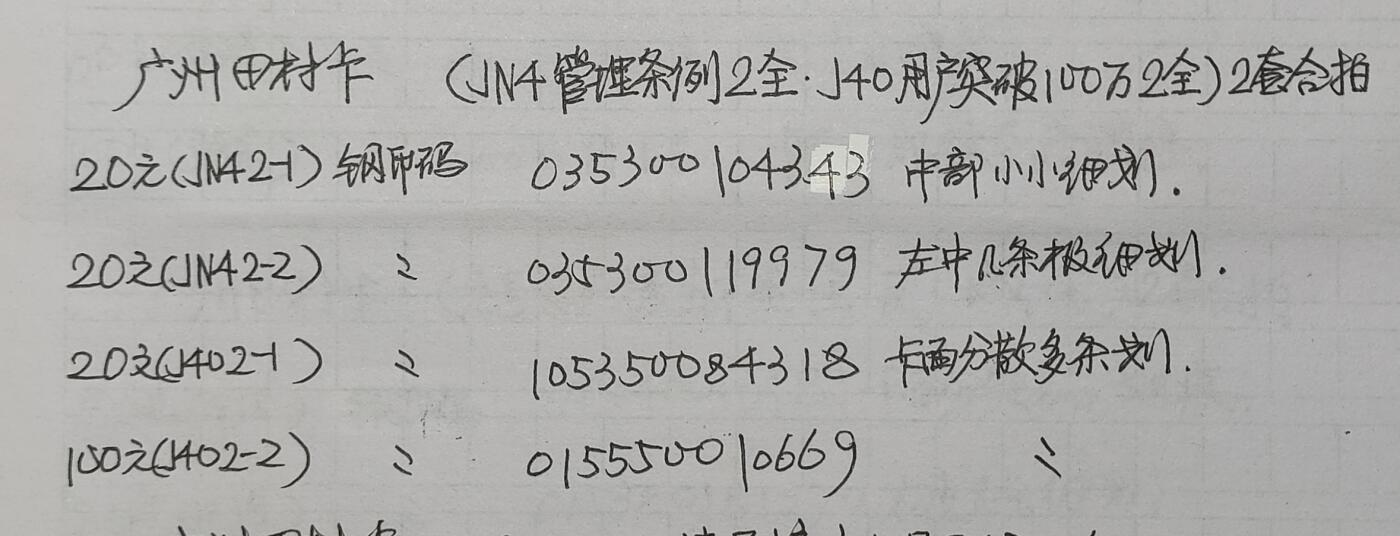 广州田村卡 (JN4管理条例2全·J40用户突破100万2全)2套合拍
20元(JN42-1) 钢印码 035300104343 中部小小细划.
20元(JN42-2) 〃 035300119979 左中几条极细划.
20元(J402-1) 〃 105350084318 卡面分散多条划.
100元(J402-2) 〃 015550010669 〃
广州田村卡